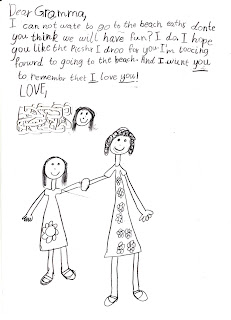 Dear Gramma,
I can not wate to go to the beach
you think we will have fun? I do. I hope
you like the I droo for you I'm
forward to going to the beach. And I wunt you
to remembr that I love you!
LOVE,